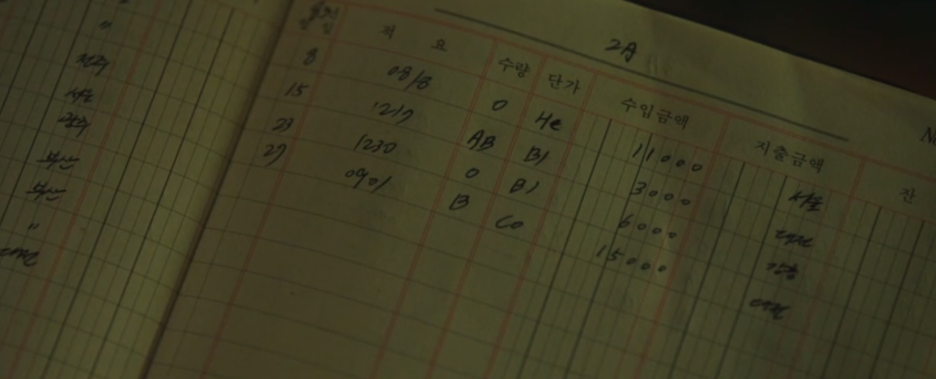 "
전주
서울
광주
부산
부산
"
대전
2월
적 요 수량 단가 수입금액 지출금액 잔
8 0818 O He 11000 서울
15 1217 AB Bl 3000 대전
23 1230 O Bl 6000 강릉
27 0901 B Co 15000 대전